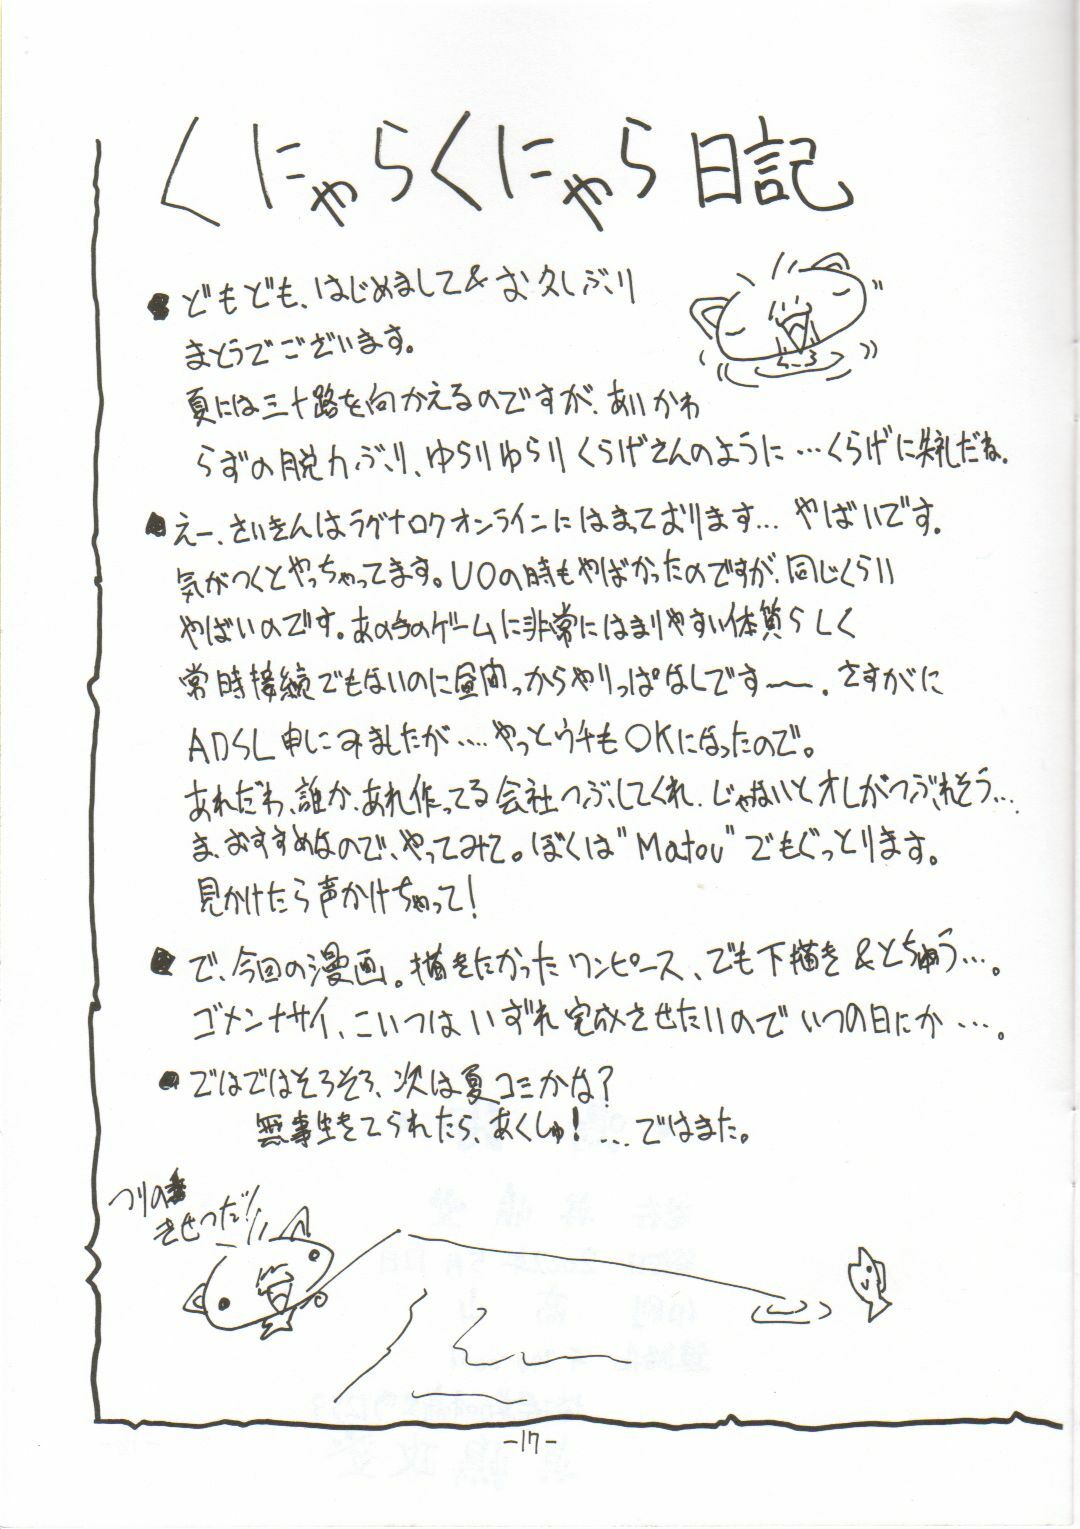 くにゃらくにゃら日記
●どもども、はじめまして＆お久しぶり
まとうでございます。
夏には三十路を向かえるのですが、あいかわ
らずの脱力ぶり、ゆらりゆらりくらげさんのように…くらげに失礼だね。
●えー、さいきんはラグナロクオンラインにはまっております… やばいです。
気がつくとやっちゃってます。UOの時もやばかったのですが、同じくらい
やばいのです。あの手のゲームに非常にはまりやすい体質らしく
常時接続でもないのに昼間っからやりっぱなしです〜〜。さすがに
ADSL申しこみましたが…. やっとウチもOKになったので。
あれだわ、誰か、あれ作ってる会社つぶしてくれ、じゃないとオレがつぶれそう…
ま、おすすめなので、やってみて。ぼくは"Matou"でもぐっとります。
見かけたら声かけちゃって！
●で、今回の漫画。描きたかったワンピース、でも下描き＆とちゅう…。
ゴメンナサイ、こいつはいずれ完成させたいのでいつの日にか…。
●ではではそろそろ、次は夏コミかな？
無事生きてられたら、あくしゅ！…ではまた。
つりの
きせつだ!!
-17-